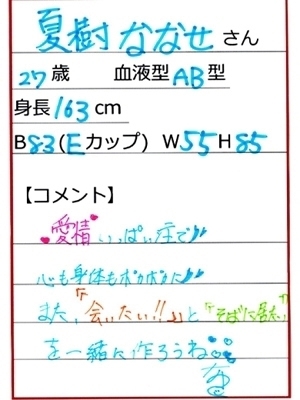 夏樹ななせさん
27歳 血液型AB型
身長163cm
B83(Eカップ) W55 H85
【コメント】
愛情いっぱい症で♪
心も身体もポカポカに♪
また、「会いたい!!」と「そばに居たい」
を一緒に作ろうね